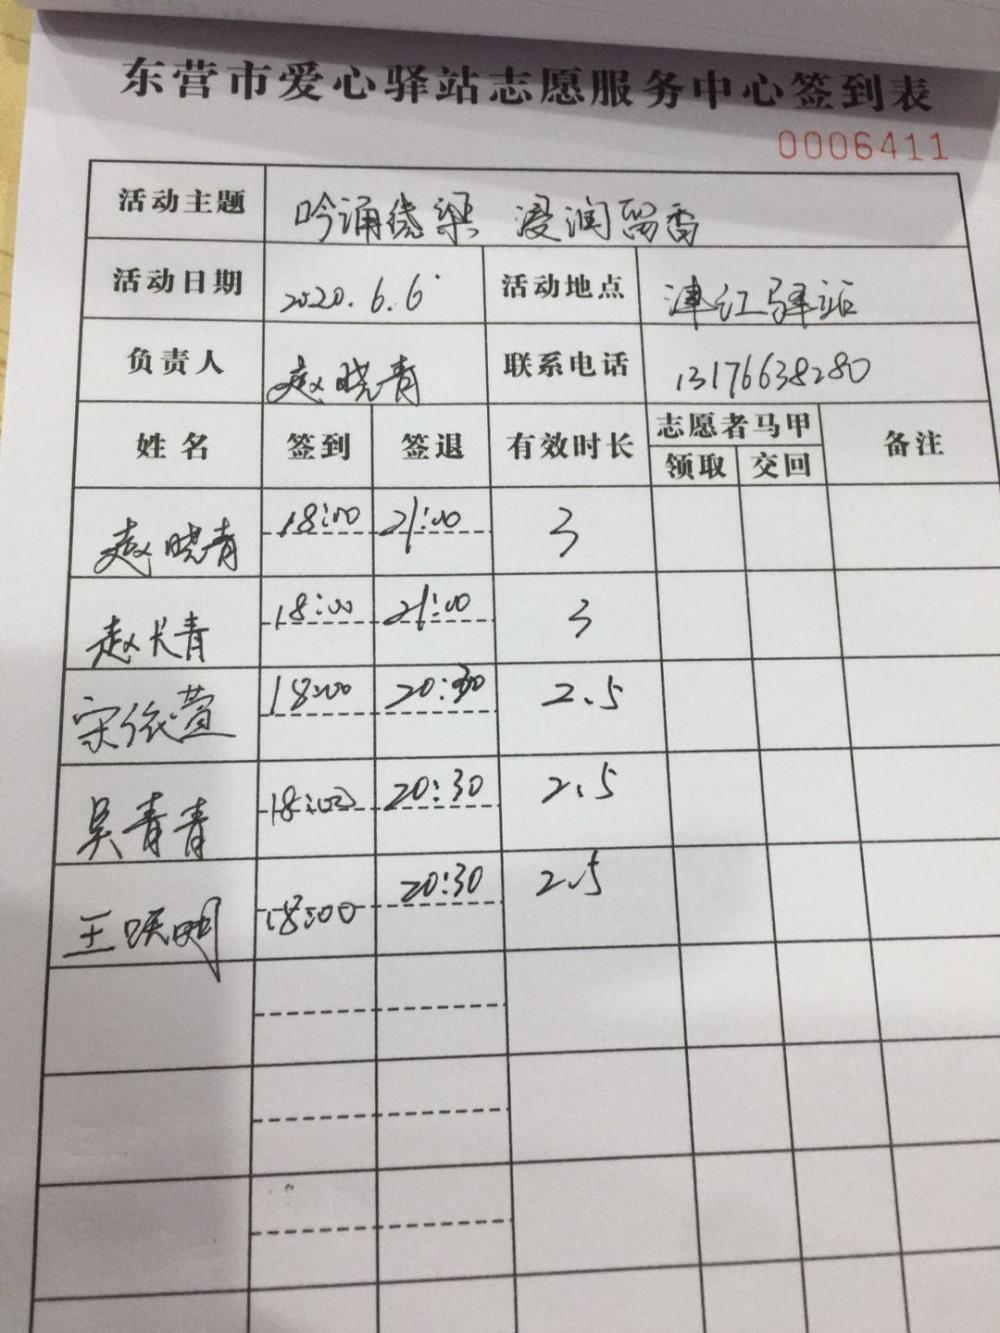 东营市爱心驿站志愿服务中心签到表
0006411
活动主题 吟诵绕梁 浸润留香
活动日期 2020.6.6 活动地点 津红驿站
负责人 赵晓青 联系电话 13176638280
姓名 签到 签退 有效时长 志愿者马甲 备注
领取 交回
赵晓青 18:00 21:00 3
赵长青 18:00 21:00 3
宋依萱 18:00 20:30 2.5
吴青青 18:00 20:30 2.5
王 明 18:00 20:30 2.5